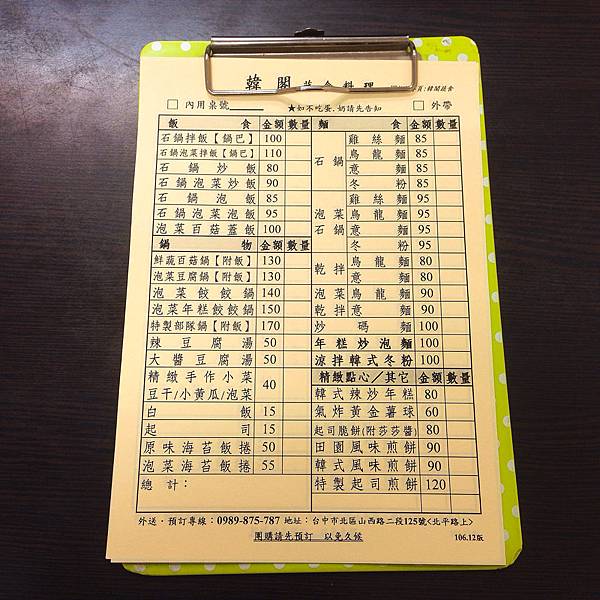 韓閣蔬食料理
頁:韓閣蔬食
□ 內用桌號 ★如不吃蛋.奶請先告知 □ 外帶
飯食 金額 數量
石鍋拌飯【鍋巴】 100
石鍋泡菜拌飯【鍋巴】 110
石鍋炒飯 80
石鍋泡菜炒飯 90
石鍋泡飯 85
石鍋泡菜泡飯 95
泡菜百菇蓋飯 100
鍋物 金額 數量
鮮蔬百菇鍋【附飯】 130
泡菜豆腐鍋【附飯】 130
泡菜餃餃鍋 140
泡菜年糕餃餃鍋 150
特製部隊鍋【附飯】 170
辣豆腐湯 50
大醬豆腐湯 50
精緻手作小菜
豆干/小黃瓜/泡菜 40
白飯 15
起司 15
原味海苔飯捲 50
泡菜海苔飯捲 55
總計:
麵食 金額 數量
石鍋
雞絲麵 85
烏龍麵 85
意麵 85
冬粉 85
泡菜石鍋
雞絲麵 95
烏龍麵 95
意麵 95
冬粉 95
乾拌
烏龍麵 80
意麵 80
泡菜乾拌
烏龍麵 90
意麵 90
炒碼麵 100
年糕炒泡麵 100
涼拌韓式冬粉 100
精緻點心/其它 金額 數量
韓式辣炒年糕 80
氣炸黃金薯球 60
起司脆餅(附莎莎醬) 80
田園風味煎餅 90
韓式風味煎餅 90
特製起司煎餅 120
外送‧預訂專線:0989-875-787 地址:台中市北區山西路二段125號<北平路上>
團購請先預訂 以免久候
106.12版